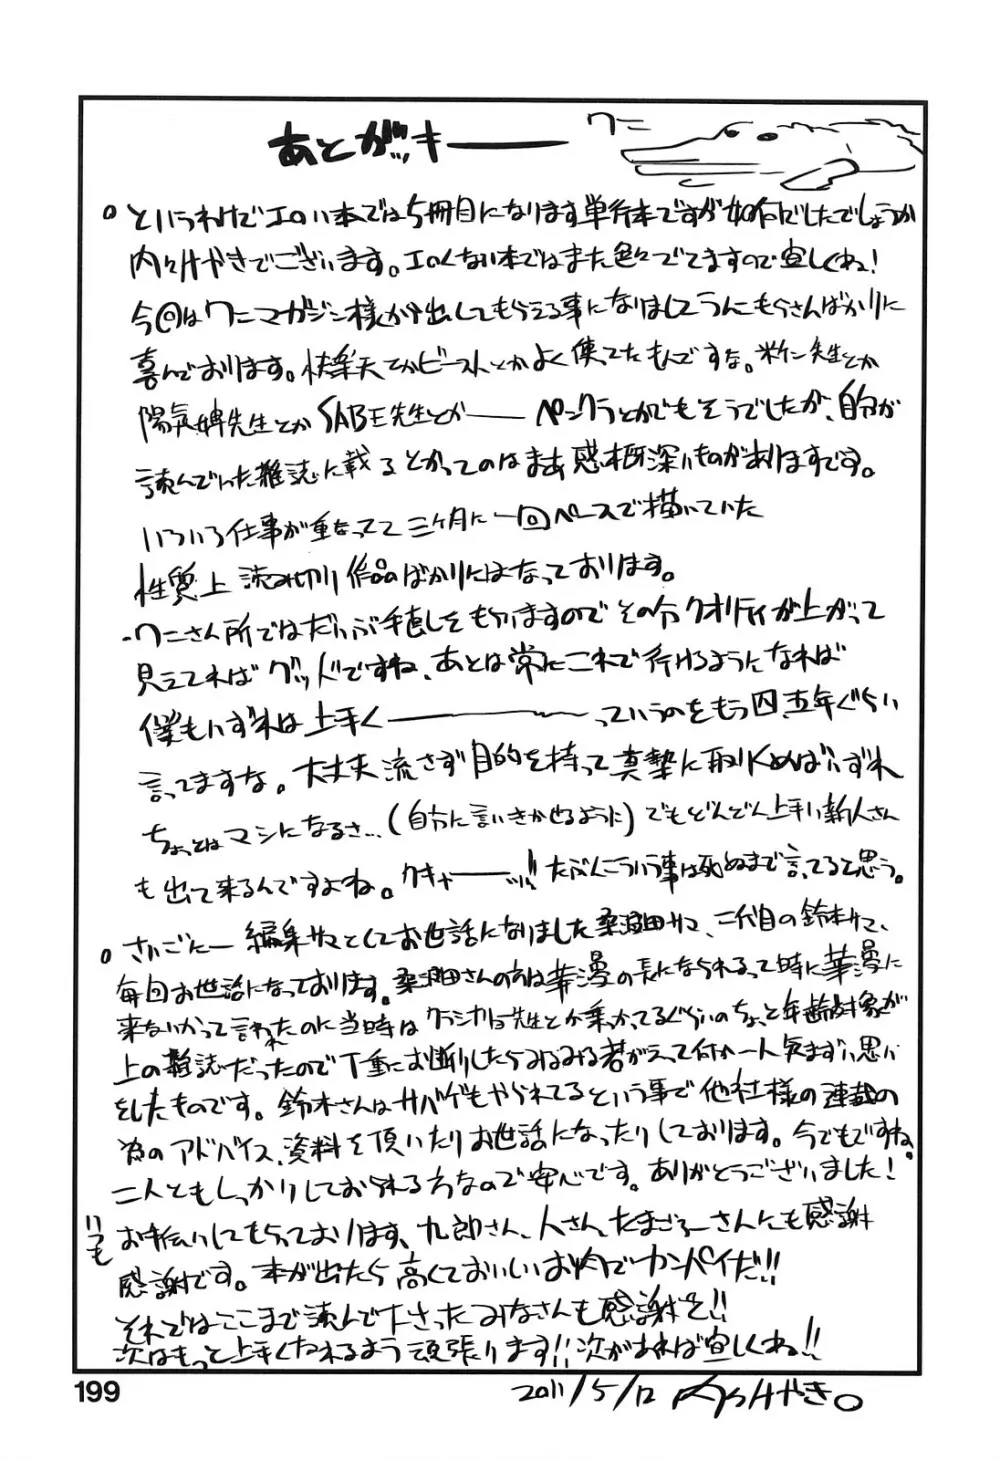 あとがッキー
ワニ
。というわけでエロい本では5冊目になります単行本ですが如何でしたでしょうか
内々けやきでございます。エロくない本ではまた色々でてますので宜しくね!
今回はワニマガジン様から出してもらえる事になりましてうんにもうさんばかりに
喜んでおります。快楽天とかビーストとかよく使てたもんですな。米仁先生とか
陽気婢先生とかSABE先生とか―― ペンクラとかでもそうでしたが、自分が
読んでいた雑誌に載るとかってのはまあ感概深いものがありますです。
いろいろ仕事が重なってて三ヶ月に一回ペースで描いていた
性質上 読み切り作品ばかりにはなっております。
・ワニさん所ではだいぶ手直しをもらいますのでその分クオリティが上がって
見えてればグッドですね、あとは常にこれで行けるようになれば
僕もいずれは上手く―――っていうのをもう四、五年ぐらい
言ってますな。大丈夫 流さず目的を持って真摯に取りくめばいずれ
ちょっとはマシになるさ…(自分に言いきかせるように)でもどんどん上手い新人さん
も出て来るんですよね。クキャーーッ!! たぶんこういう事は死ぬまで言ってると思う。
。さいごにー 編集サマとしてお世話になりました桑沼田サマ、二代目の鈴木サマ、
毎回お世話になっております。さんの方は華漫の長になられるって時に華漫に
来ないかって言われたのに当時はクラシカリョ先生とか乗っかってるぐらいのちょっと年齢対象が
上の雑誌だったので丁重にお断りしたらみるみる若がえって何か一人気まずい思い
をしたものです。鈴木さんはサバゲもやられてるという事で他社様の連載の
為のアドバイス、資料を頂いたりお世話になったりしております。今でもですね。
二人ともしっかりしておられる方なので安心です。ありがとうございました!
いつも
お手伝いしてもらっております、九郎さん、人さん、たまごろーさんにも感謝
感謝です。本が出たら高くておいしいお肉でカンパイだ!!
それではここまで読んで下さったみなさんも感謝を!!
次はもっと上手くなれるよう頑張ります!!次があれば宜しくね!!
199
2011/5/12